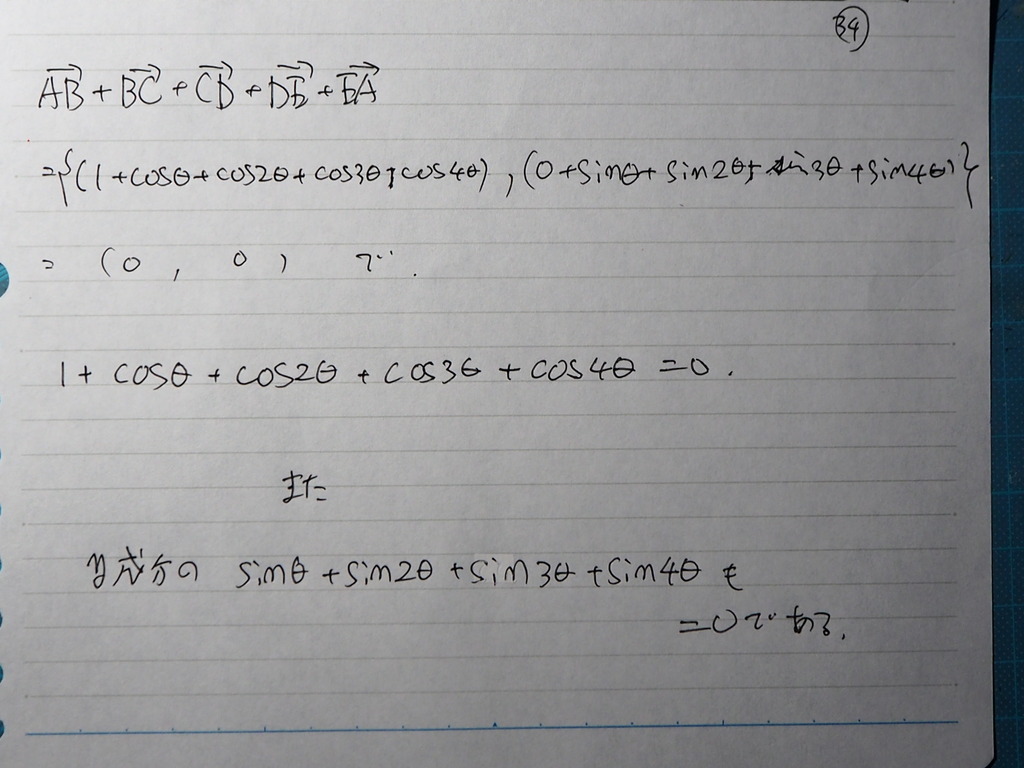 34
AB→ + BC→ + CD→ + DE→ + EA→
={(1+cosθ+cos2θ+cos3θ+cos4θ),(0+sinθ+sin2θ+sin3θ+sin4θ)}
= (0, 0) で.
1+ cosθ + cos2θ + cos3θ + cos4θ =0.
また
y成分の sinθ+sin2θ+sin3θ+sin4θ も
=0である.